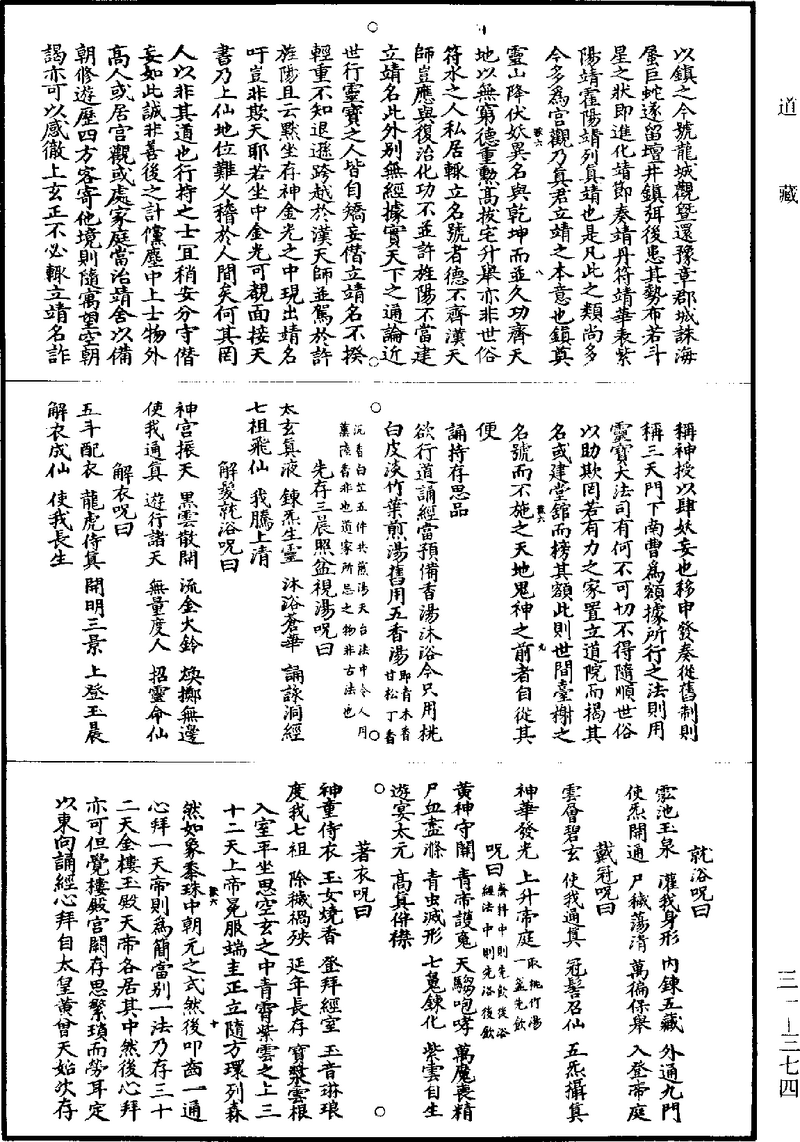 道藏
以鎮之今號龍城觀暨還豫章郡城誅海
蜃巨蛇遂留壇井鎮弭後患其勢布若斗
星之狀即進化靖節奏靖丹符靖華表紫
陽靖霍陽靖列真靖也是凡此之類尚多
今多為宮觀乃真君立靖之本意也鎮真
靈山降伏妖異名與乾坤而並久功齊天
地以無窮德重勳高拔宅升舉亦非世俗
符水之人私居輒立名號者德不齊漢天
師豈應與復治化功不並許旌陽不當建
立靖名此外別無經據實天下之通論近
世行靈寶之人皆自矯妄僭立靖名不揆
輕重不知退遜跨越於漢天師並駕於許
旌陽且云默坐存神金光之中現出靖名
吁豈非欺天耶若坐中金光可覩面接天
書乃上仙地位難乂稽於人間矣何其罔
人以非其道也行持之士宜稍安分守僭
妄如此誠非善後之計儻塵中上士物外
高人或居宮觀或處家庭當治靖舍以備
朝修遊歷四方客寄他境則隨寓望空朝
謁亦可以感徹上玄正不必輒立靖名詐
稱神授以肆妖妄也移申發奏從舊制則
稱三天門下南曹為額據所行之法則用
靈寶大法司有何不可切不得隨順世俗
以助欺罔若有力之家置立道院而揭其
名或建堂舘而榜其額此則世間臺榭之
名號而不施之天地鬼神之前者自從其
便
誦持存思品
欲行道誦經當預備香湯沐浴今只用桃
白皮淡竹葉煎湯舊用五香湯即青木香甘松丁香
沉香白芷五件共煎湯天台法中令人用
薰陸香非也道家所忌之物非古法也
先存三晨照盆視湯呪曰
太玄真液 鍊炁生靈 沐浴蒼華 誦詠洞經
七祖飛仙 我騰上清
解髮就浴呪曰
神宮振天 黑雲散開 流金火鈴 煥擲無邊
使我通真 遊行諸天 無量度人 招靈命仙
解衣呪曰
五斗配衣 龍虎侍真 開明三景 上登玉晨
解衣成仙 使我長生
就浴呪曰
靈池玉泉 灌我身形 內鍊五藏 外通九門
使炁開通 尸穢蕩清 萬徧保舉 入登帝庭
戴冠呪曰
雲會碧玄 使我通真 冠髻召仙 五炁攝真
神華發光 上升帝庭 取桃竹湯一盞先飲
呪曰 齋科中則先飲後浴經法中則先浴後飲
黃神守關 青帝護䰟 天騶咆哮 萬魔喪精
尸血盡滌 青虫滅形 七䰟鍊化 紫雲自生
遊宴太元 高真併襟
著衣呪曰
神童侍衣 玉女燒香 登拜經室 玉音琳琅
度我七祖 除穢禍殃 延年長存 寶嶪雲根
入室平坐思空玄之中青霄紫雲之上三
十二天上帝冕服端圭正立隨方環列森
然如象黍珠中朝元之式然後叩齒一通
心拜一天帝則為簡當別一法乃存三十
二天金樓玉殿天帝各居其中然後心拜
亦可但覺樓殿宮闕存思繁瑣而勞耳定
以東向誦經心拜自太皇黃曾天始次存
三一—三七四